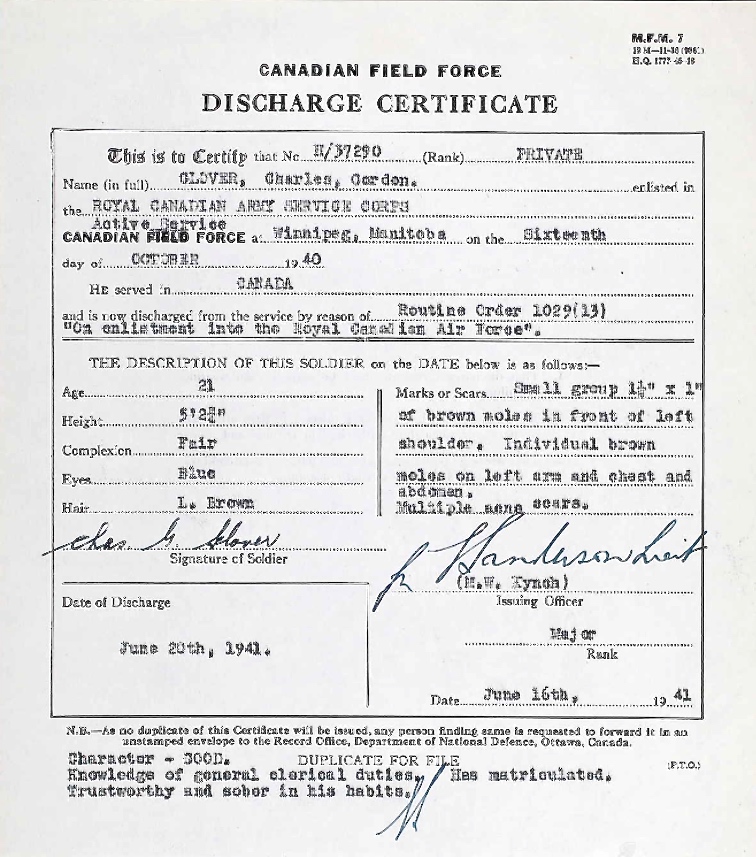 M.F.M. 7
CANADIAN FIELD FORCE
DISCHARGE CERTIFICATE
This is to Certify that No H/37290 (Rank) PRIVATE
Name (in full) GLOVER, Charles, Gordon. enlisted in
the ROYAL CANADIAN ARMY SERVICE CORPS
Active Service
CANADIAN FIELD FORCE at Winnipeg, Manitoba on the Sixteenth
day of OCTOBER 1940
HE served in CANADA
and is now discharged from the service by reason of Routine Order 1029(13)
"On enlistment into the Royal Canadian Air Force".
THE DESCRIPTION OF THIS SOLDIER on the DATE below is as follows:—
Age 21
Height 5'2¾"
Complexion Fair
Eyes Blue
Hair L. Brown
Marks or Scars Small group 1½" x 1"
of brown moles in front of left
shoulder. Individual brown
moles on left arm and chest and
abdomen.
Multiple acne scars.
Chas. G. Glover
Signature of Soldier
Lieut
(H.W. Kynch)
Issuing Officer
Date of Discharge
June 20th, 1941.
Major
Rank
Date June 16th, 1941
N.B.—As no duplicate of this Certificate will be issued, any person finding same is requested to forward it in an
unstamped envelope to the Record Office, Department of National Defence, Ottawa, Canada.
Character - GOOD. DUPLICATE FOR FILE (P.T.O.)
Knowledge of general clerical duties, Has matriculated.
Trustworthy and sober in his habits.